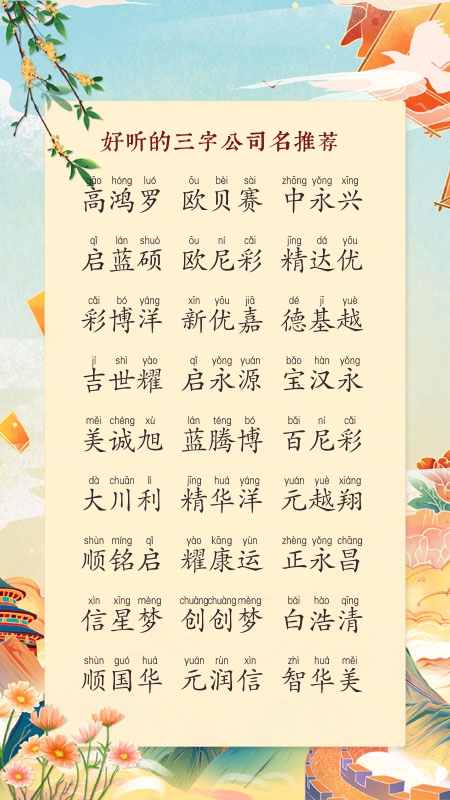 好听的三字公司名推荐
gāo hóng luó ōu bèi sài zhōng yǒng xīng
高鸿罗 欧贝赛 中永兴
qǐ lán shuò ōu ní cǎi jīng dá yōu
启蓝硕 欧尼彩 精达优
cǎi bó yáng xīn yōu jiā dé jī yuè
彩博洋 新优嘉 德基越
jí shì yào qǐ yǒng yuán bǎo hàn yǒng
吉世耀 启永源 宝汉永
měi chéng xù lán téng bó bǎi ní cǎi
美诚旭 蓝腾博 百尼彩
dà chuān lì jīng huá yáng yuán yuè xiáng
大川利 精华洋 元越翔
shùn míng qǐ yào kāng yùn zhèng yǒng chāng
顺铭启 耀康运 正永昌
xìn xīng mèng chuàngchuàngmèng bái hào qīng
信星梦 创创梦 白浩清
shùn guó huá yuán rùn xìn zhì huá měi
顺国华 元润信 智华美